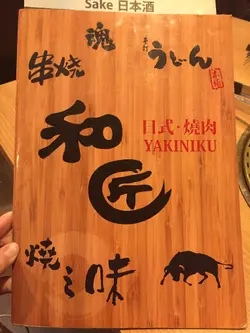 Sake 日本酒
魂
串烧
手打
うどん
和匠
日式·燒肉
YAKINIKU
燒之味